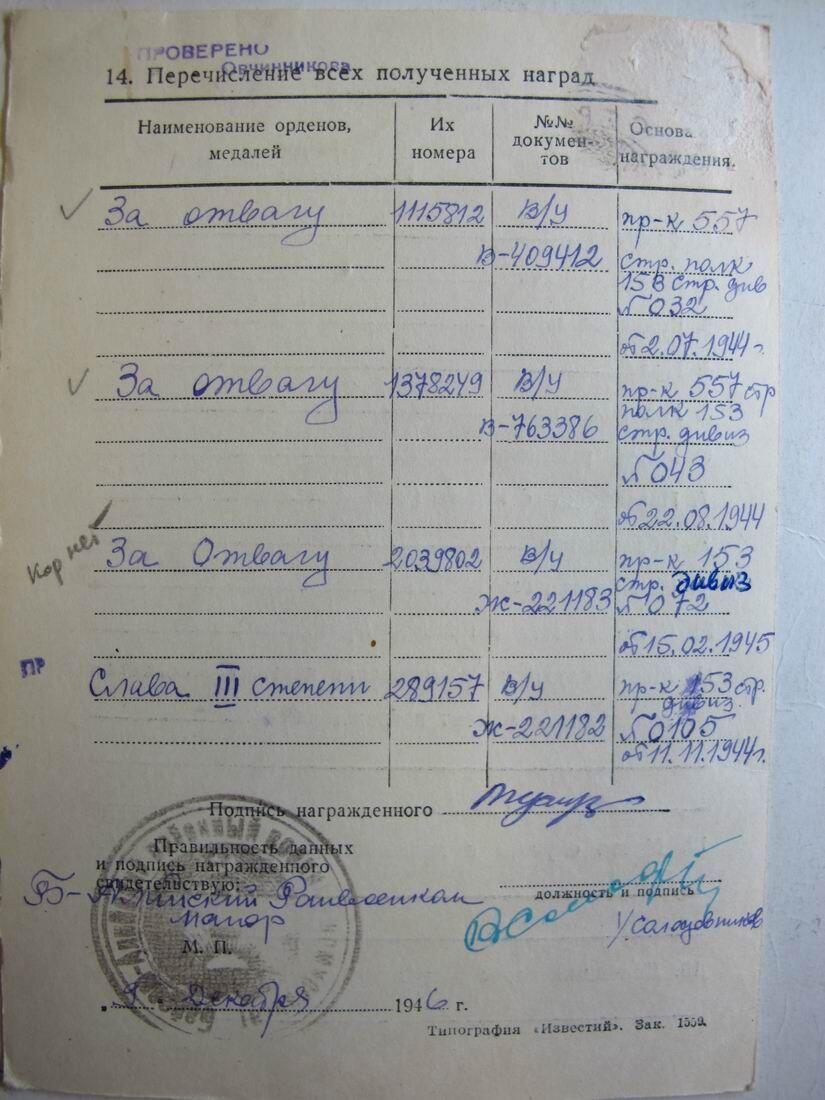 ПРОВЕРЕНО
Овчинникова
14. Перечисление всех полученных наград
Наименование орденов, медалей
Их номера
№№ докумен-тов
Основа награждения.
За отвагу 1115812 В/У пр-к 557
В-409412 стр. полк
153 стр. див
№ 032
от 2.07.1944 г.
За отвагу 1378249 В/У пр-к 557 стр
полк 153
В-763386 стр. дивиз
№ 043
от 22.08.1944
Кор нет
За Отвагу 2039802 В/У пр-к 153
стр. дивиз
Ж-221183 № 072
от 15.02.1945
ПР
Слава III степени 289157 В/У пр-к 153 стр.
дивиз.
Ж-221182 № 0105
от 11.11.1944 г.
Подпись награжденного
Правильность данных
и подпись награжденного
свидетельствую:
должность и подпись
Майор
М. П.
9 Декабря 1946 г.
Типография «Известий». Зак. 1559.